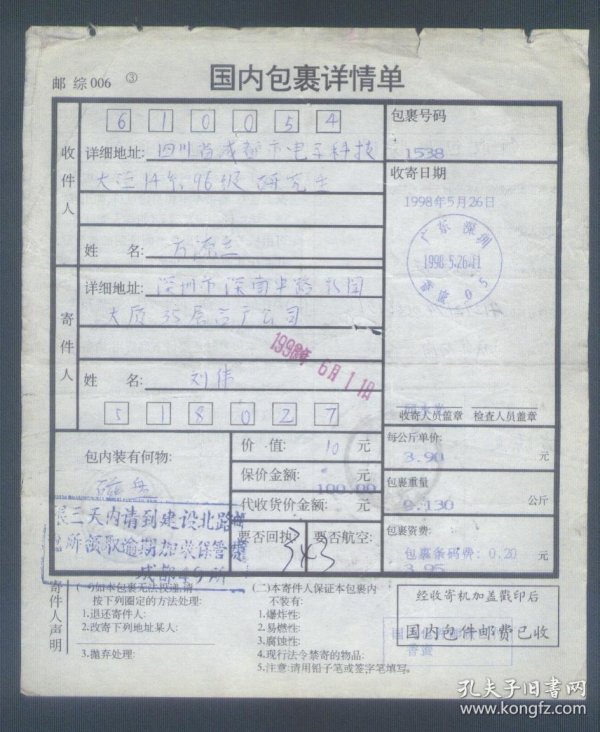 邮 综 006 ③
国内包裹详情单
6 1 0 0 5 4
收件人
详细地址: 四川省成都市电子科技
大 96级 研究生
姓 名:
寄件人
详细地址: 深圳市深南中路
大厦35层 公司
姓 名: 刘伟
5 1 8 0 2 7
1998年 6月 1日
包裹号码
1538
收寄日期
1998年5月26日
广东 深圳
1998.5.26.11
05
收寄人员盖章 检查人员盖章
包内装有何物:
磁盘
价 值: 10 元
保价金额: 元
100.00
代收货价金额: 元
要否回执 要否航空:
343
每公斤单价:
3.90 元
包裹重量
0.130 公斤
包裹资费:
包裹条码费: 0.20 元
3.95
限三天内请到建设北路邮
电所领取逾期加收保管费
寄件人声明
(一)如本包裹无法投递,请
按下列圈定的方法处理:
1.退还寄件人:
2.改寄下列地址某人:
3.抛弃处理:
(二)本寄件人保证本包裹内
不装有:
1.爆炸性:
2.易燃性:
3.腐蚀性:
4.现行法令禁寄的物品:
5.注意:请用铅子笔或签字笔填写。
经收寄机加盖戳印后
国内包件邮费已收
孔夫子旧书网
www.kongfz.com